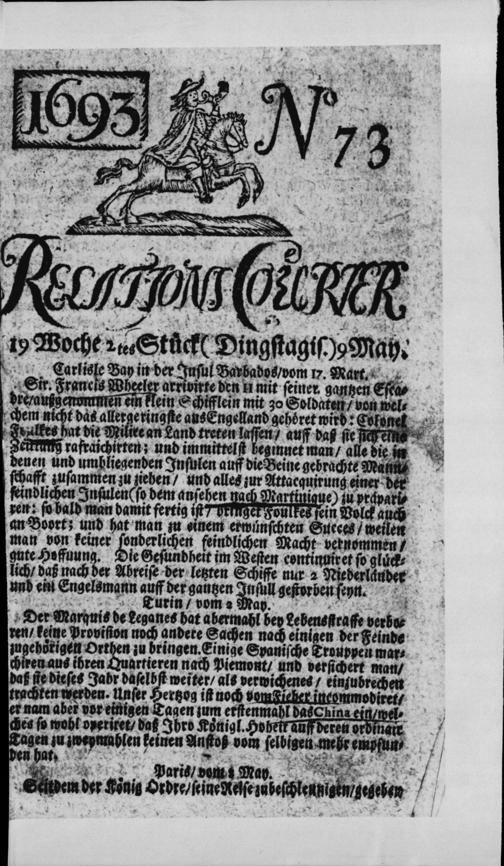 1693
No 73
RELATIONS COURIER
19 Woche 2tes Stück (Dingstagis.) 9 May.
Carlisle Bay in der Insul Barbados / vom 17. Mart.
Sir. Francis Wheeler arrivirte den 11 mit seiner. gantzen Esca-
dre/ außgenommen ein klein Schifflein mit 30 Soldaten / von wel-
chem nicht das allergeringste aus Engelland gehöret wird: Colonel
Foulkes hat die Milice an Land treten lassen / auff daß sie sich eine
Zeitlung rafraichirten; und immittelst beginnet man / alle die in
denen und umbliegenden Insulen auff die Beine gebrachte Mann-
schafft zusammen zu ziehen / und alles zur Attacquirung einer der
feindlichen Insulen (so dem ansehen nach Martinique) zu präpari-
ren: so bald man damit fertig ist / bringet Foulkes sein Volck auch
an Boort; und hat man zu einem erwünschten Succes / weilen
man von keiner sonderlichen feindlichen Macht vernommen /
gute Hoffnung. Die Gesundheit im Westen continuiret so glück-
lich / daß nach der Abreise der letzten Schiffe nur 2 Niederländer
und ein Engelsmann auff der gantzen Insull gestorben seyn.
Turin / vom 2 May.
Der Marquis de Leganes hat abermahl bey Lebensstraffe verbo-
ten / keine Provision noch andere Sachen nach einigen der Feinde
zugehörigen Orthen zu bringen. Einige Spanische Trouppen mar-
chiren aus ihren Quartieren nach Piemont / und versichert man /
daß sie dieses Jahr daselbst weiter / als verwichenes / einzubrechen
trachten werden. Unser Hertzog ist noch vom Fieber incommodiret /
er nam aber vor einigen Tagen zum erstenmahl das China ein / wel-
ches so wohl operiret / daß Ihro Königl. Hoheit auff deren ordinair
Tagen zu zweymahlen keinen Anstoß vom selbigen mehr empfun-
den hat.
Paris / vom May.
Seitdem der König Ordre / seine Reise zu beschleunigen / gegeben